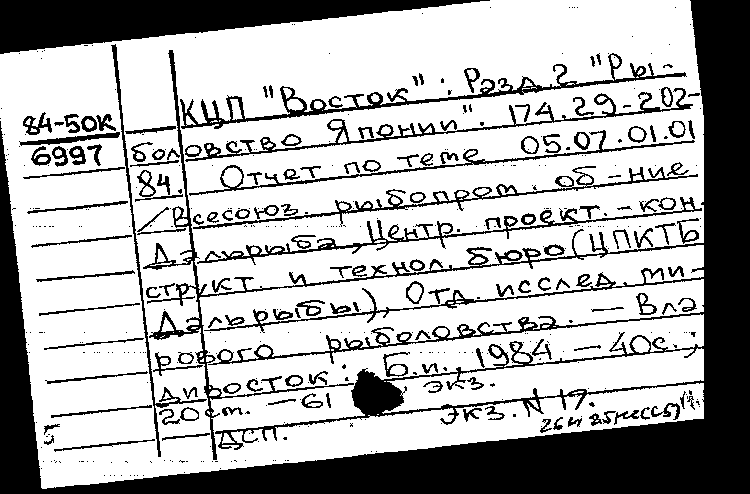 84-50К
6997
КЦП "Восток" : Разд.2 "Ры-
боловство Японии". 174.29-202-
84. Отчет по теме 05.07.01.01
/Всесоюз. рыбопром. об-ние
Дальрыба, Центр. проект.-кон-
структ. и технол. бюро(ЦПКТБ
Дальрыбы), Отд. исслед. ми-
рового рыболовства. — Вла-
дивосток: Б.и., 1984. — 40с.;
20см. — 61 экз.
ДСП. экз. N 17.
5